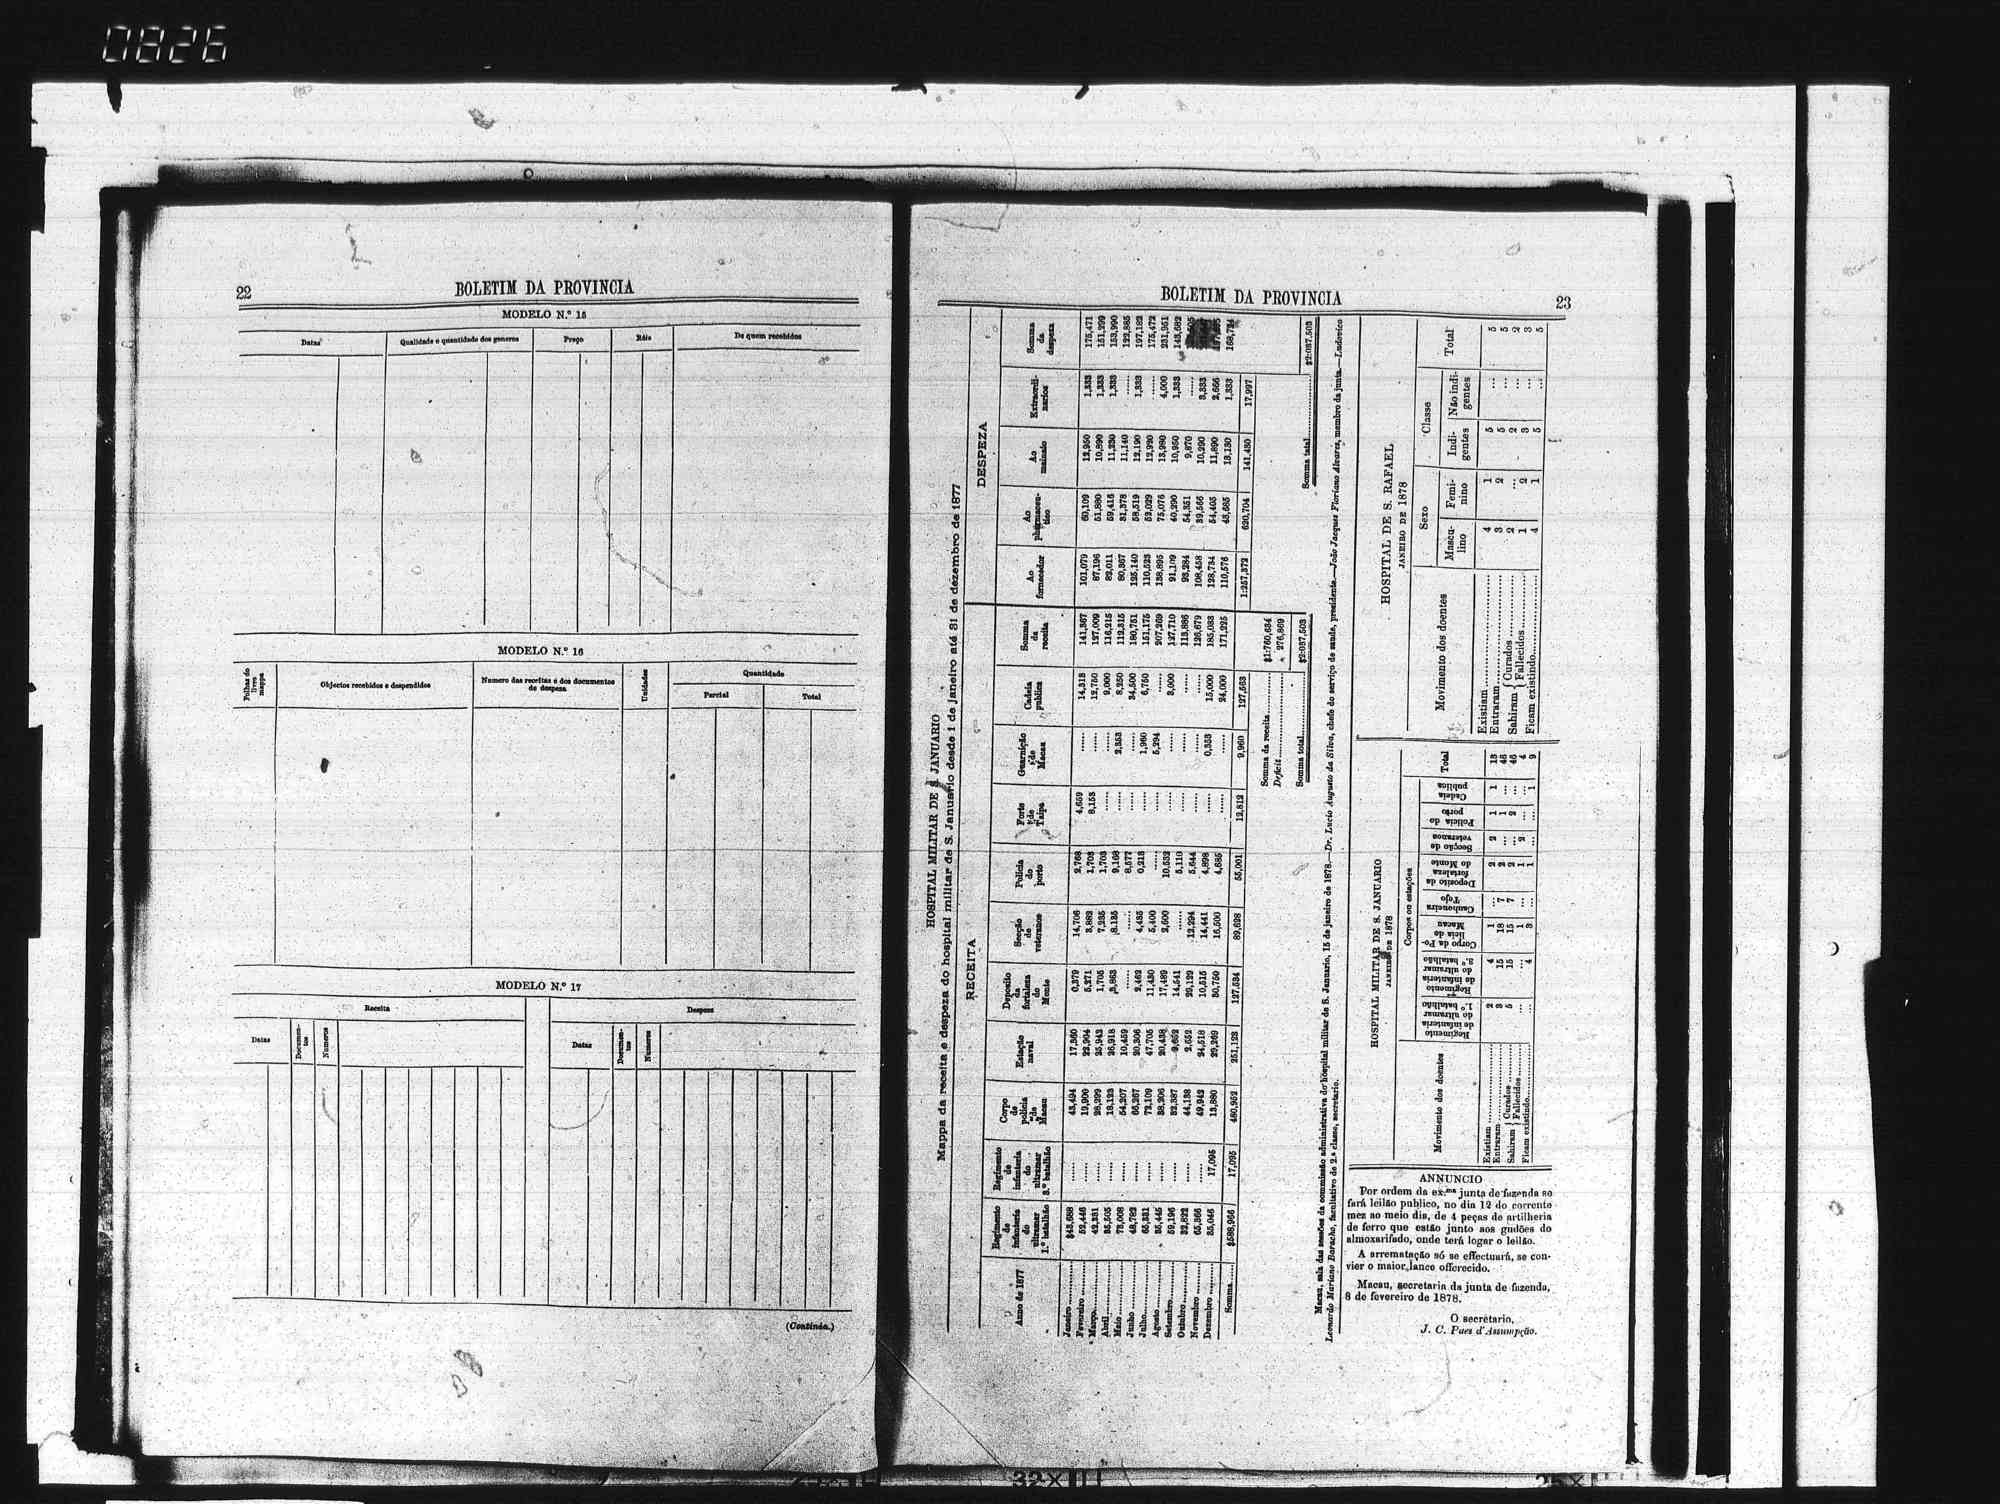 0826
22
BOLETIM DA PROVINCIA
MODELO N.º 15
Datas Qualidade e quantidade dos generos Preço Réis De quem recebidos
MODELO N.º 16
Folhas do livro mappa Objectos recebidos e despendidos Numero das receitas e dos documentos de despeza Unidades Quantidade
Parcial Total
MODELO N.º 17
Receita Despeza
Datas Documentos Numeros Datas Documentos Numeros
(Continúa.)
BOLETIM DA PROVINCIA
23
HOSPITAL MILITAR DE S. JANUARIO
Mappa da receita e despeza do hospital militar de S. Januario desde 1 de janeiro até 31 de dezembro de 1877
RECEITA DESPEZA
Anno de 1877 Regimento de infanteria do ultramar 1.º batalhão Regimento de infanteria do ultramar 3.º batalhão Corpo de policia de Macau Estação naval Deposito da fortaleza do Monte Secção de veteranos Policia do porto Forte de Taipa Guarnição de Macau Cadeia publica Somma da receita Ao fornecedor Ao pharmaceutico Ao mainato Extraordinarios Somma da despeza
Janeiro $43,688 ...... 43,494 17,360 0,379 14,706 2,768 4,659 ...... 14,313 141,367 101,079 60,109 12,950 1,333 175,471
Fevereiro 52,446 ...... 19,906 22,904 5,271 3,882 1,703 8,153 ...... 12,750 127,009 87,196 51,880 10,890 1,333 151,299
Março 42,331 ...... 28,299 25,942 1,705 7,235 1,703 ...... ...... 9,000 116,215 82,011 59,416 11,230 1,333 153,990
Abril 35,505 ...... 18,123 26,918 3,863 8,135 9,168 ...... 2,353 8,250 112,315 80,367 31,378 11,140 ...... 122,885
Maio 73,008 ...... 54,207 10,459 ...... ...... 8,577 ...... ...... 34,500 180,751 125,140 58,519 12,190 1,333 197,182
Junho 48,782 ...... 66,267 20,306 2,462 4,435 0,213 ...... 1,960 6,750 151,175 110,523 52,029 12,920 ...... 175,472
Julho 65,331 ...... 72,109 47,705 11,430 5,400 ...... ...... 5,294 ...... 207,269 138,895 75,076 13,980 4,000 231,951
Agosto 35,445 ...... 38,206 20,438 17,489 2,600 10,532 ...... ...... 3,000 127,710 91,109 40,290 10,950 1,333 143,682
Setembro 59,196 ...... 32,387 2,652 14,541 ...... 5,110 ...... ...... ...... 113,886 93,284 54,351 9,870 ......
Outubro 32,822 ...... 44,138 2,552 29,129 12,294 5,644 ...... ...... ...... 126,679 108,458 39,566 10,290 3,333
Novembro 65,366 ...... 49,942 24,518 10,515 14,441 4,898 ...... 0,353 15,000 185,033 128,734 54,405 11,890 2,666
Dezembro 35,046 17,095 13,880 29,269 30,750 16,500 4,685 ...... ...... 24,000 171,225 110,576 43,685 13,130 1,333 168,724
Somma $588,966 17,095 480,952 251,123 127,534 89,628 55,001 12,812 9,960 127,563 1:257,372 620,704 141,430 17,997
Somma da receita $1:760,634
Deficit » 276,869
Somma total $2:037,503 Somma total $2:037,503
Macau, sala das sessões da commissão administrativa do hospital militar de S. Januario, 15 de janeiro de 1878.—Dr. Lucio Augusto da Silva, chefe do serviço de saude, presidente.—João Jacques Floriano Alvares, membro da junta.—Ludovico
Leonardo Mariano Baracho, facultativo de 2.ª classe, secretario.
HOSPITAL MILITAR DE S. JANUARIO
JANEIRO DE 1878
Movimento dos doentes Corpos ou estações Total
Regimento de infanteria do ultramar 1.º batalhão Regimento de infanteria do ultramar 3.º batalhão Corpo da Policia de Macau Canhoneira Tejo Deposito da fortaleza do Monte Secção de veteranos Policia do porto Cadeia publica
Existiam 2 4 1 ... 2 2 1 1 13
Entraram 3 15 18 7 2 ... 1 ... 46
Sahiram Curados 5 15 15 7 2 ... 2 ... 46
Fallecidos ... ... 1 ... 1 2 ... ... 4
Ficam existindo ... 4 3 ... 1 ... ... 1 9
HOSPITAL DE S. RAFAEL
JANEIRO DE 1878
Movimento dos doentes Sexo Classe Total
Masculino Feminino Indigentes Não indigentes
Existiam 4 1 5 ... 5
Entraram 3 2 5 ... 5
Sahiram Curados 2 ... 2 ... 2
Fallecidos 1 2 3 ... 3
Ficam existindo 4 1 5 ... 5
ANNUNCIO
Por ordem da ex.ma junta de fazenda se
fará leilão publico, no dia 12 do corrente
mez ao meio dia, de 4 peças de artilheria
de ferro que estão junto aos gudões do
almoxarifado, onde terá logar o leilão.
A arrematação só se effectuará, se con-
vier o maior lance offerecido.
Macau, secretaria da junta de fazenda,
8 de fevereiro de 1878.
O secretario,
J. C. Paes d'Assumpção.
32X